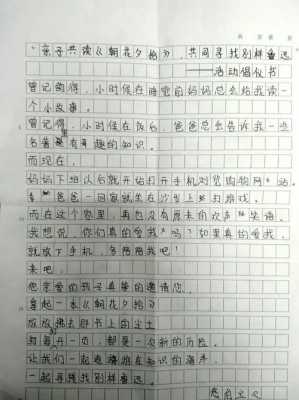 “亲子共读《朝花夕拾》，共同寻找别样鲁迅
——活动倡仪书
曾记得，小时候在睡觉前妈妈总会给我读一
个小故事。
曾记得，小时候在饭后，爸爸总会告诉我一些
名著里有趣的知识。
而现在，
妈妈下班以后就开始打开手机浏览购物网站，
爸爸一回家就坐在沙发上打游戏。
而在这个家里，再也没有原来的欢声笑语。
我想说，你们真的爱我吗？如果真的爱我，
就放下手机，多陪陪我吧！
来吧，
您亲爱的孩子真挚的邀请您，
拿起一本《朝花夕拾》
放放拂去那书上的尘土
每翻开一页，都是一次新的历险。
让我们一起遨游在知识的海洋
一起寻找别样鲁迅。